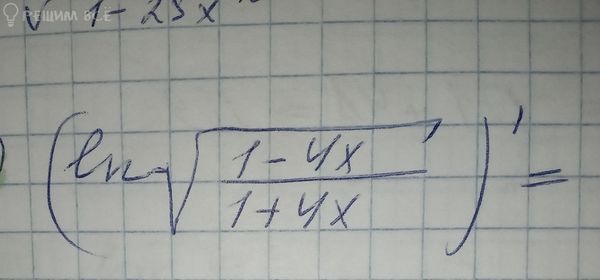 РЕШИМ ВСЁ
√ 1 - 25x
(ln √((1-4x)/(1+4x)))' =